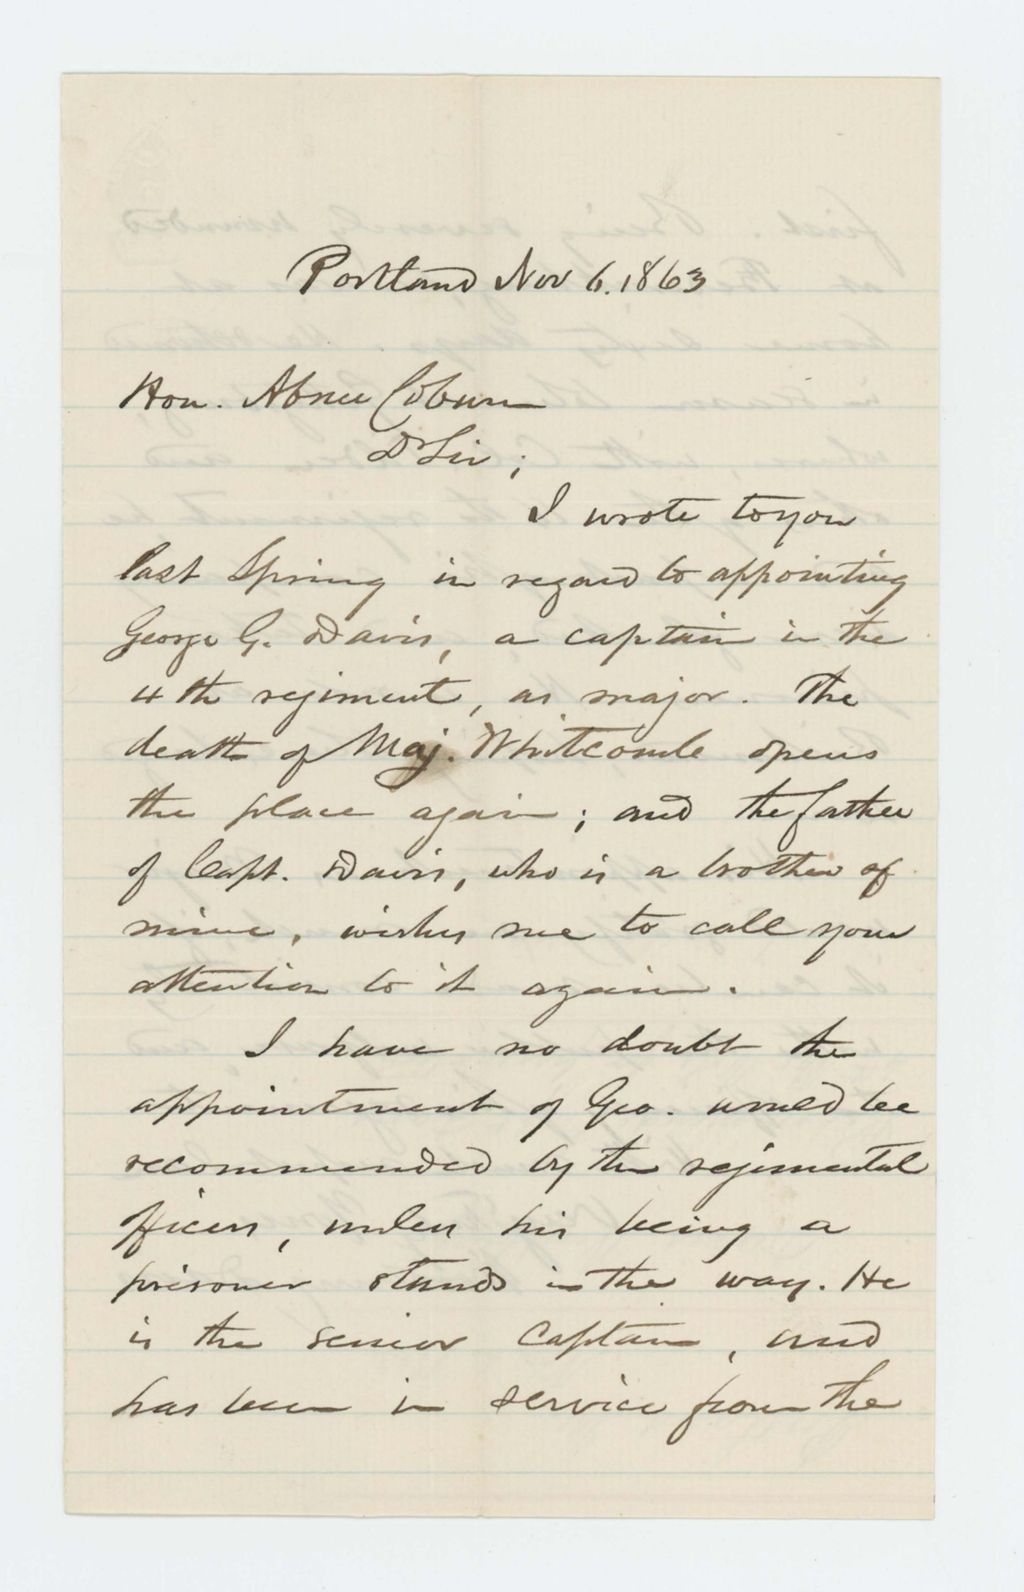 Portland Nov 6. 1863
Hon. Abner Coburn
Dr Sir;
I wrote to you
last Spring in regard to appointing
George G. Davis, a captain in the
4th regiment, as major. The
death of Maj. Whitcomb opens
the place again; and the father
of Capt. Davis, who is a brother of
mine, wishes me to call your
attention to it again.
I have no doubt the
appointment of Geo. would be
recommended by the regimental
officers, unless his being a
prisoner stands in the way. He
is the senior Captain, and
has been in service from the